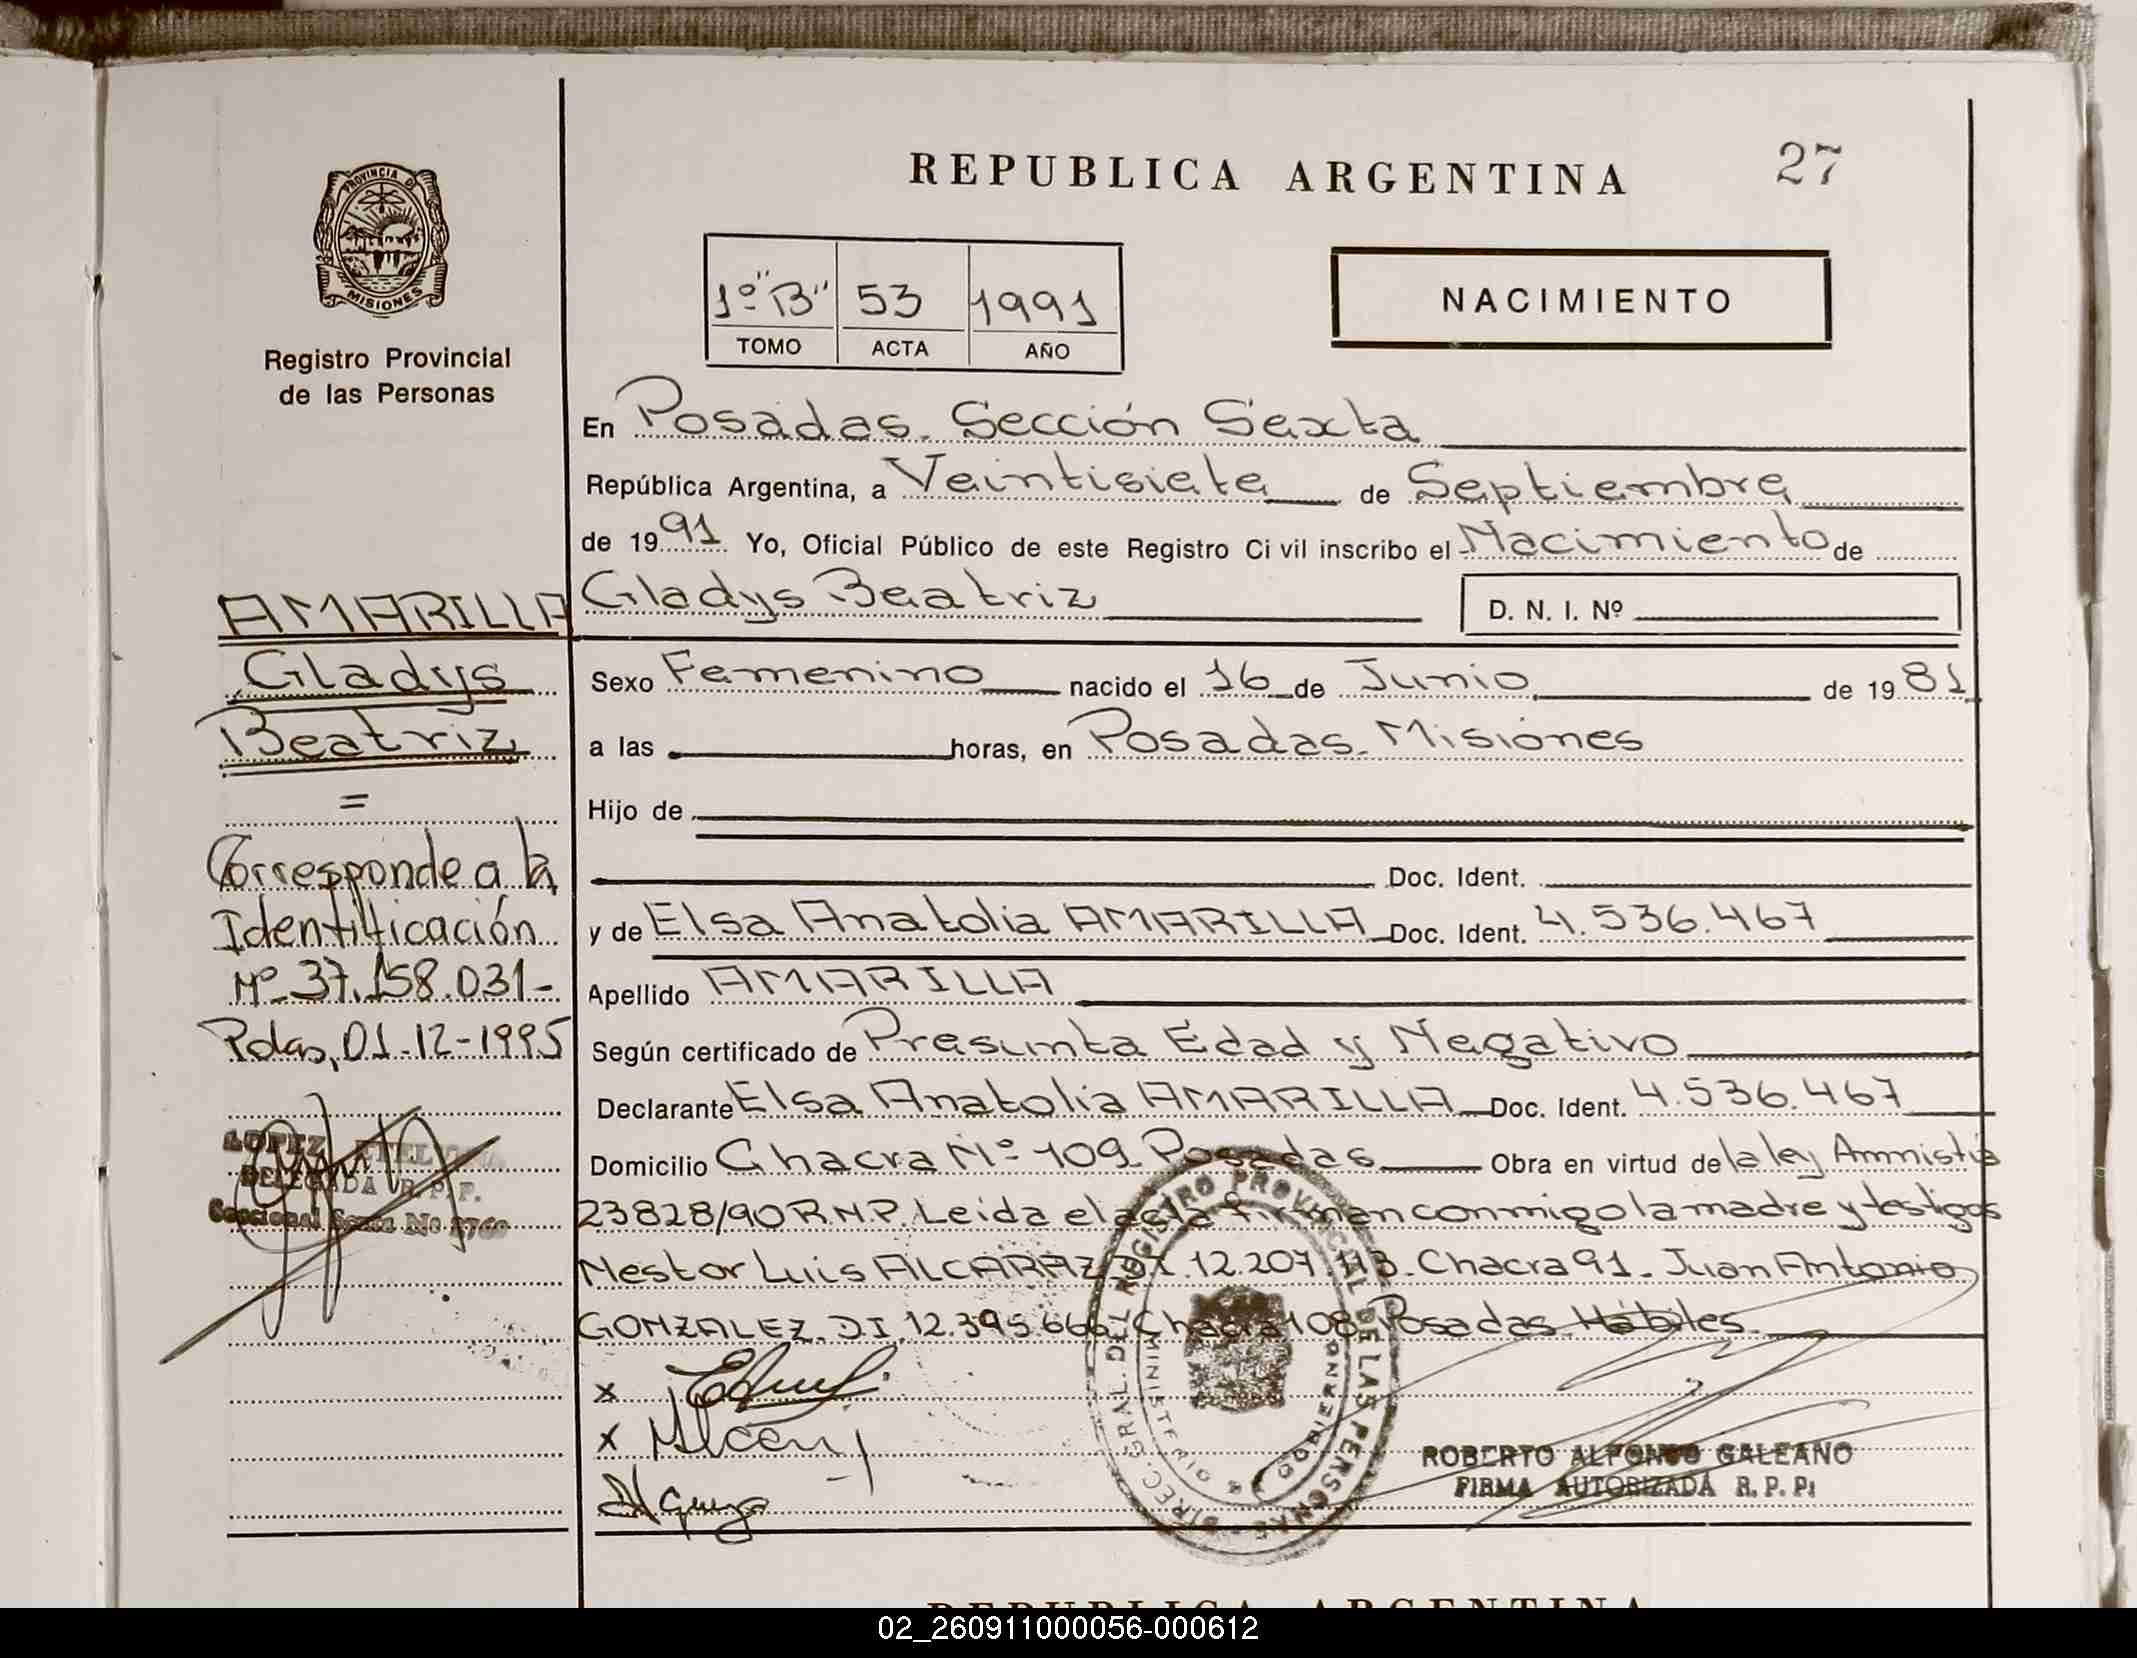 REPUBLICA ARGENTINA
27
PROVINCIA DE
MISIONES
Registro Provincial
de las Personas
1º "B" 53 1991
TOMO ACTA AÑO
NACIMIENTO
En Posadas. Sección Sexta
República Argentina, a Veintisiete de Septiembre
de 1991 Yo, Oficial Público de este Registro Civil inscribo el Nacimiento de
Gladys Beatriz
D. N. I. Nº
Sexo Femenino nacido el 16 de Junio de 1981
a las horas, en Posadas. Misiones
Hijo de
Doc. Ident.
y de Elsa Anatolia AMARILLA Doc. Ident. 4.536.467
Apellido AMARILLA
Según certificado de Presunta Edad y Negativo
Declarante Elsa Anatolia AMARILLA Doc. Ident. 4.536.467
Domicilio Chacra Nº 109 Posadas Obra en virtud de la ley Amnistia
23828/90 R.N.P. Leida el acta firman conmigo la madre y testigos
Nestor Luis ALCARAZ DI. 12.207.113. Chacra 91. Juan Antonio
GONZALEZ. D.I. 12.395.666 Chacra 108 Posadas Hábiles.
AMARILLA
Gladys
Beatriz
=
Corresponde a la
Identificación
Nº 37.158.031-
Pdas, 01-12-1995
LOPEZ
DELEGADA R.P.P.
Seccional Sexta No 2760
x
x
DIREC. GRAL. DEL REGISTRO PROVINCIAL DE LAS PERSONAS
MINISTERIO DE GOBIERNO
ROBERTO ALFONSO GALEANO
FIRMA AUTORIZADA R. P. P.
REPUBLICA ARGENTINA
02_260911000056-000612